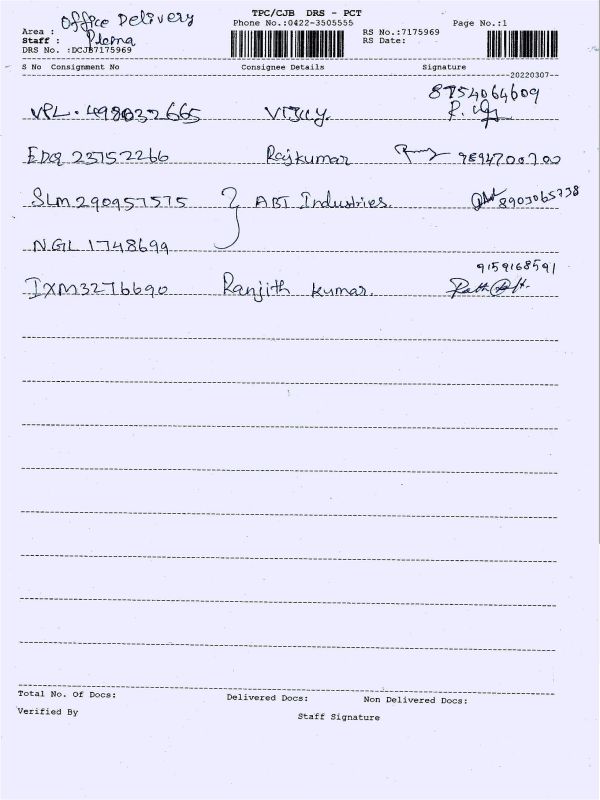 TPC/CJB DRS - PCT
Office Delivery
Phone No.:0422-3505555 Page No.:1
Area :
Staff :
RS No.:7175969
RS Date:
DRS No. :DCJB7175969
S No Consignment No Consignee Details Signature
--20220307--
8754064609
VPL.498032665 Vijay
EDQ 23752266 Rajkumar 9894700700
SLM290957575 ABT Industries. 8903065738
NGL 1748699
9159168591
IXM3276690 Ranjith kumar.
Total No. Of Docs: Delivered Docs: Non Delivered Docs:
Verified By Staff Signature